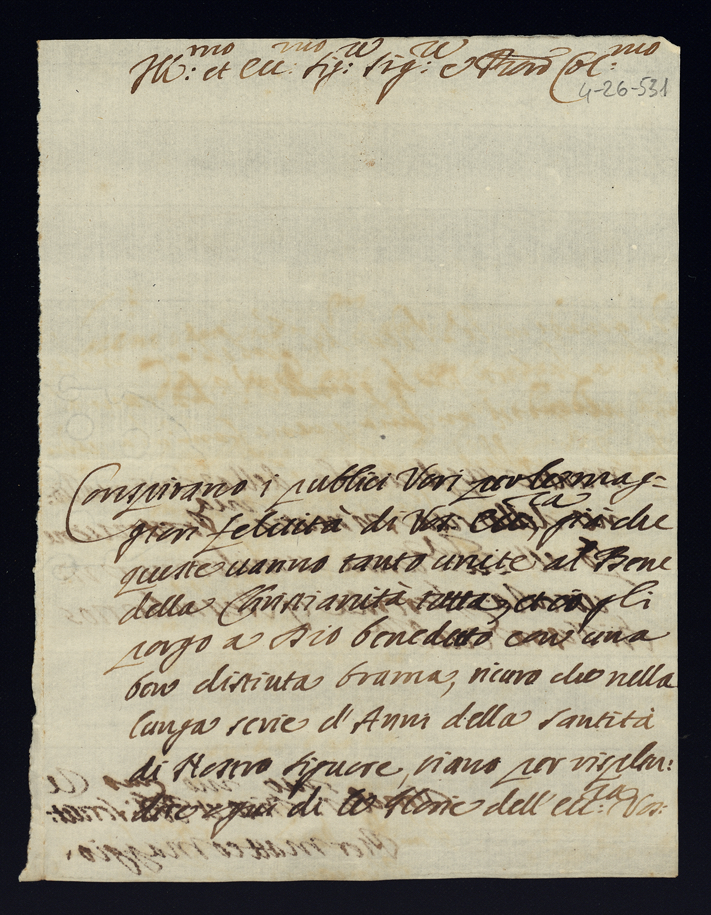 Ill:mo et Ecc:mo Sig:re Sig:re e Pron Col:mo
4-26-531
Conspirano i publici Voti per le mag-
giori felicità di Vos Ecc:za, già che
queste uanno tanto unite al Bene
della Christianità tutta, et io gli
porgo a Dio benedetto con una
ben distinta brama, sicuro che nella
lunga serie d'Anni della Santità
di Nostro Signore, siano per risplen:
dere più di le Glorie dell'ecc:za Vos: